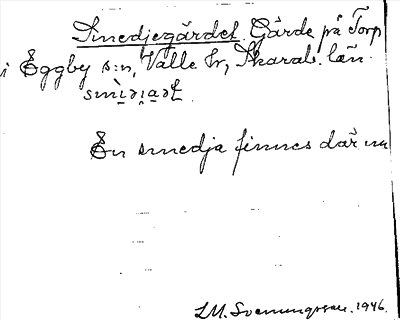 Smedjegärdet. Gärde på Torp
i Eggby s:n, Valle hr, Skarab. län.
En smedja finnes där nu
L.M. Svenungsson. 1946.